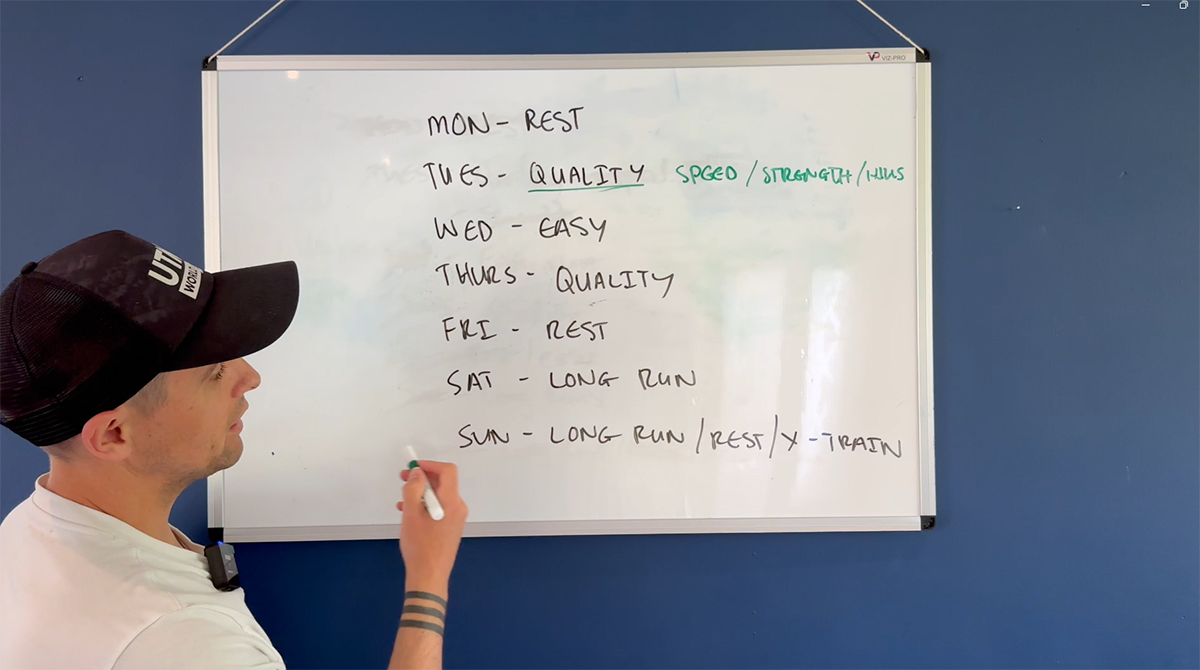 VIZ-PRO
MON - REST
TUES - QUALITY SPEED / STRENGTH / HILLS
WED - EASY
THURS - QUALITY
FRI - REST
SAT - LONG RUN
SUN - LONG RUN / REST / X - TRAIN
WORLD